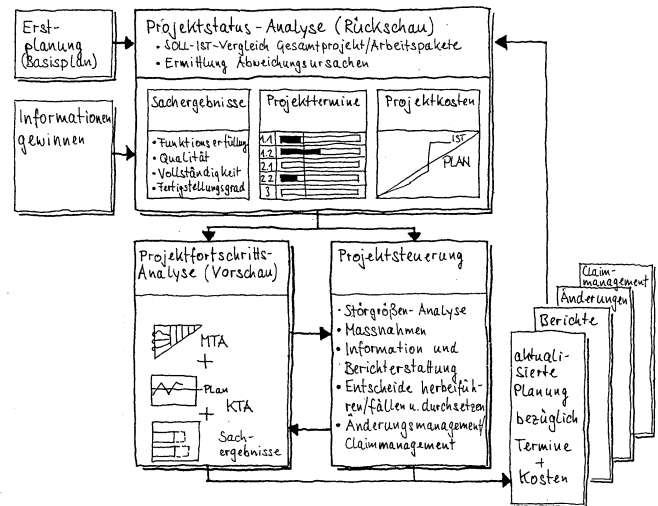 Erst-
planung
(Basisplan)
Informationen
gewinnen
Projektstatus-Analyse (Rückschau)
• SOLL-IST-Vergleich Gesamtprojekt/Arbeitspakete
• Ermittlung Abweichungsursachen
Sachergebnisse
• Funktionserfüllung
• Qualität
• Vollständigkeit
• Fertigstellungsgrad
Projekttermine
1.1
1.2
2.1
2.2
3
Projektkosten
IST
PLAN
Projektfortschritts-
Analyse (Vorschau)
MTA
+
Plan
+ KTA
Sach-
ergebnisse
Projektsteuerung
• Störgrößen-Analyse
• Massnahmen
• Information und
Berichterstattung
• Entscheide herbeifüh-
ren/fällen u. durchsetzen
• Änderungsmanagement/
Claimmanagement
Claim-
management
Änderungen
Berichte
aktuali-
sierte
Planung
bezüglich
Termine
+
Kosten